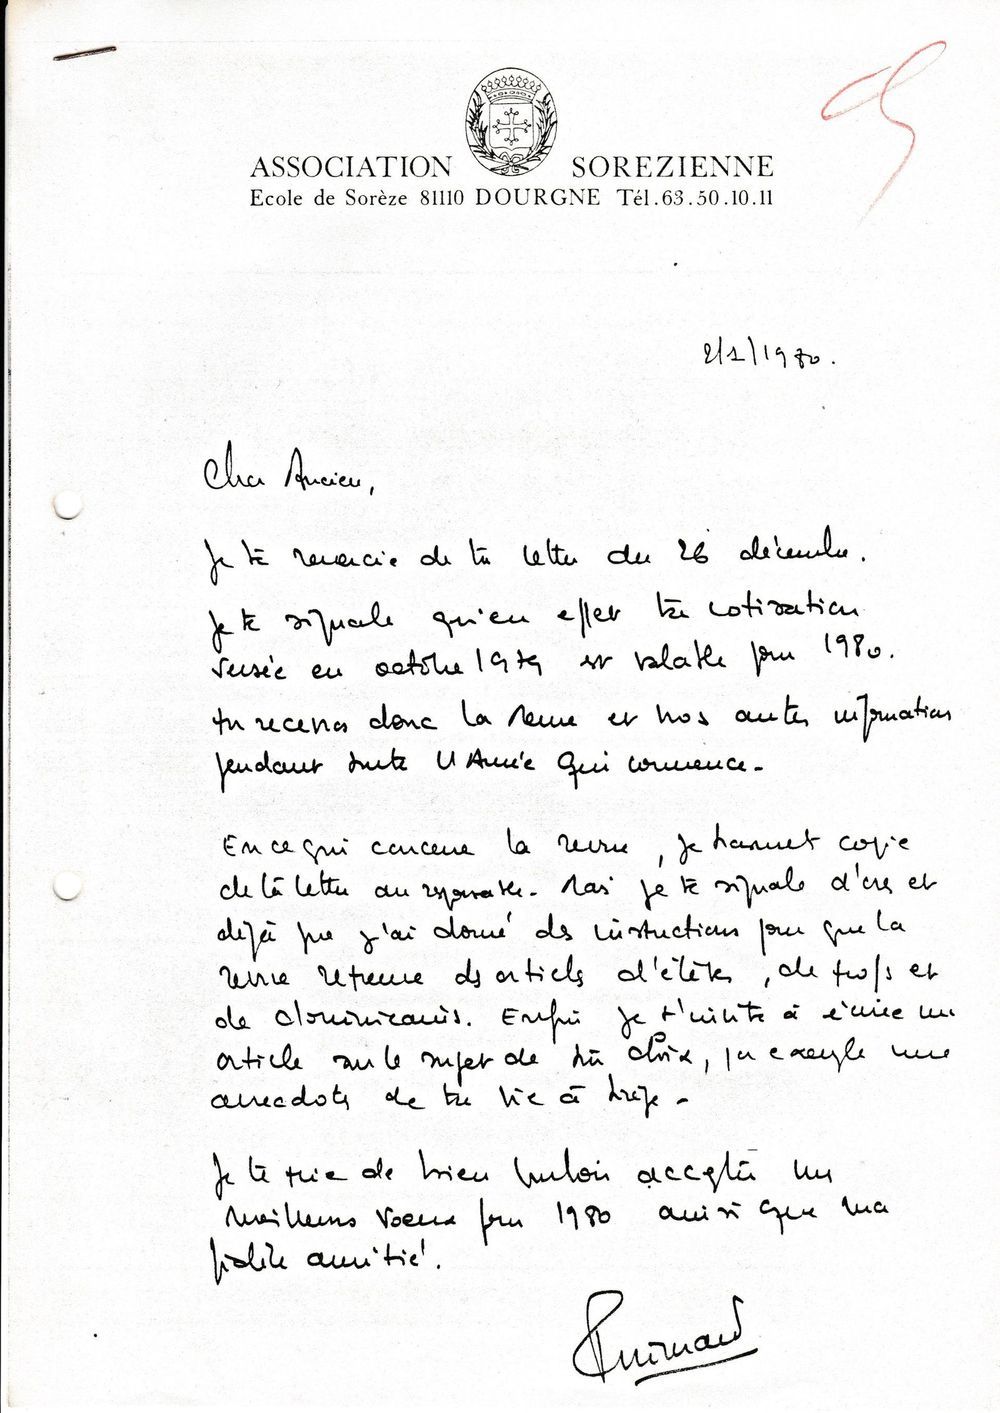 ASSOCIATION SOREZIENNE
Ecole de Sorèze 81110 DOURGNE Tél.63.50.10.11
2/1/1980.
Cher Ancien,
Je te remercie de ta lettre du 26 décembre.
Je te signale qu'en effet ta cotisation
versée en octobre 1979 est valable pour 1980.
tu recevras donc la Revue et nos autres informations
pendant toute l'Année qui commence -
En ce qui concerne la revue, je transmet copie
de ta lettre au responsable - Mais je te signale d'ores et
déjà que j'ai donné des instructions pour que la
revue retrouve des articles d'élèves, de profs et
de dominicains. Enfin je t'invite à écrire un
article sur le sujet de ton choix, par exemple une
anecdote de ta vie à Sorèze -
Je te prie de bien vouloir accepter mes
meilleurs voeux pour 1980 ainsi que ma
fidèle amitié.